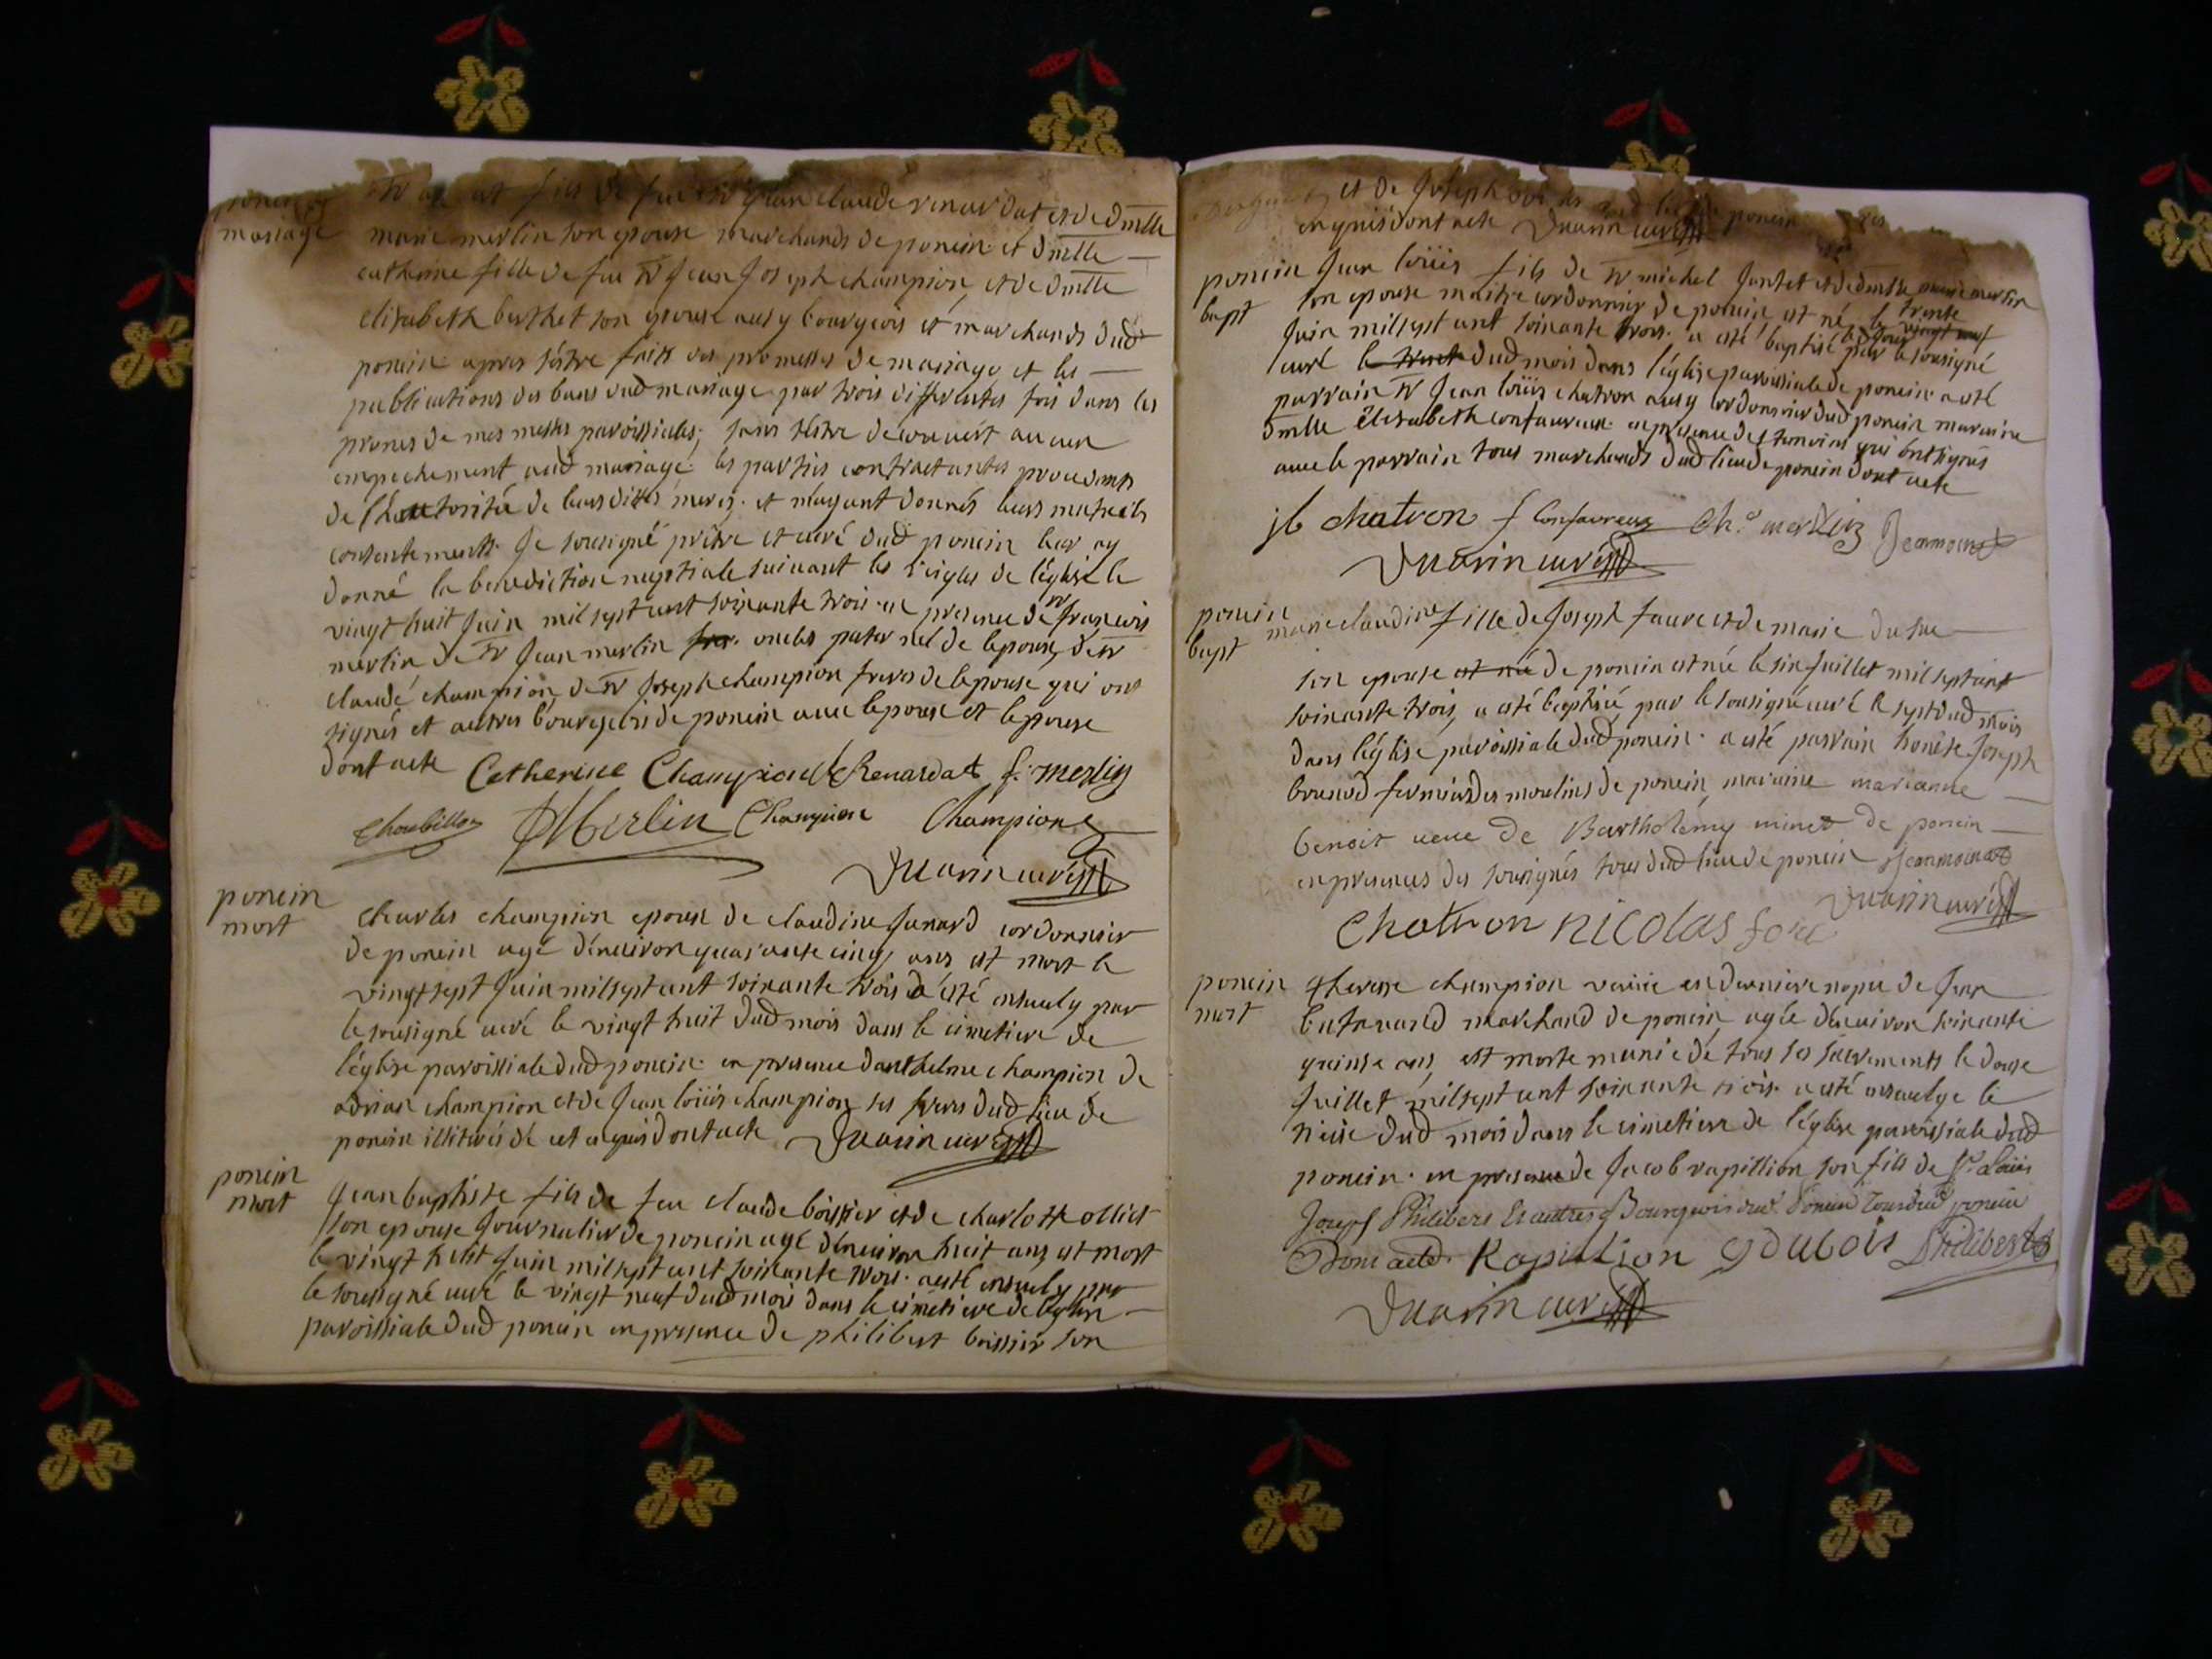 poncin
mariage
fils de feu Sr Jean claude renardat et de dmlle
marie merlin son epouse marchands de poncin et dmlle
catherine fille de feu Sr Jean Joseph champion, et de dmlle
elisabeth berthet son epouse ausy bourgeois et marchands dud
poncin apres s'éstre faits des promesses de mariage et les
publications des bans dud mariage par trois differentes fois dans les
prones de mes messes paroissiales, sans s'éstre decouvert aucun
empechement aud mariage. les parties contractantes procedants
de l'hautorité de leurs dittes meres. et m'ayant donnés leurs mutuels
consentements. Je sousigné prêtre et curé dud poncin leur ay
donné la benediction nuptiale suivant les regles de l'église le
vingt huit Juin mil sept cent soixante trois. en presence de Sr francois
merlin de Sr Jean merlin oncles paternel de lepoux, de Sr
claude champion, de Sr Joseph champion freres de lepouse qui ont
signés et autres bourgeois de poncin avec lepoux et lepouse
dont acte Catherine Champion Renardat f. merlin
Choubillon Merlin Champion Champion
Duarin curé
poncin
mort
Charles champion epoux de claudine Junard cordonnier
de poncin agé d'énviron quarante cinq ans est mort le
vingt sept Juin mil sept cent soixante trois a été ensevely par
le sousigné curé le vingt huit dud mois dans le cimetiere de
l'église paroissiale dud poncin. en presence d'anthelme champion de
adrian champion et de Jean loüis champion ses freres dud lieu de
poncin illiterés de ce enquis dont acte Duarin curé
poncin
mort
Jean baptiste fils de feu claude boissier et de charlotte olliet
son epouse Journalier de poncin agé d'énviron huit ans est mort
le vingt huit Juin mil sept cent soixante trois. a esté ensevely par
le sousigné curé le vingt neuf dud mois dans le cimetiere de léglise
paroissiale dud poncin en presence de philibert boissier son
et de Joseph poncin
enquis dont acte Duarin curé
poncin
bapt
Jean loüis fils de Sr michel Jantet et de dmlle marie merlin
son epouse maitre cordonnier de poncin, est né le trente
vingt neuf
Juin mil sept cent soixante trois. a esté baptisé par le sousigné
curé le trente dud mois dans l'église paroissiale de poncin. a esté
parrain Sr Jean loüis chatron ausy cordonnier dud poncin maraine
dmlle élisabeth confavreux. en presence des temoins qui ont signés
avec le parrain tous marchands dud lieu de poncin dont acte
jl chatron f Confavreux Ch. merlin Jeanmonet
Duarin curé
poncin
bapt
marie claudine fille de Joseph faure et de marie
son epouse et née de poncin est née le six Juillet mil sept cent
soixante trois, a esté baptisé par le sousigné curé le sept dud mois
dans l'église paroissiale dud poncin. a esté parrain honête Joseph
brunod fermier des moulins de poncin, maraine marianne
benoit veuve de Bartholemy minet de poncin
en presences des sousignés tous dud lieu de poncin Jeanmonet
Duarin curé
Chatron nicolas fore
poncin
mort
therese champion veuve en derniere nopce de Jean
marchand de poncin, agée d'énviron soixante
quinse ans, est morte munie de tous ses sacrements le douse
Juillet mil sept cent soixante trois. a esté ensevelye le
treise dud mois dans le cimetiere de l'église paroissiale dud
poncin. en presence de Jacob rapillion son fils de Sr Loüis
Joseph Philibert Et autres Bourgeois dud Poncin Tous dud poncin
Dont acte. Rapillion Dubois Philibert
Duarin curé